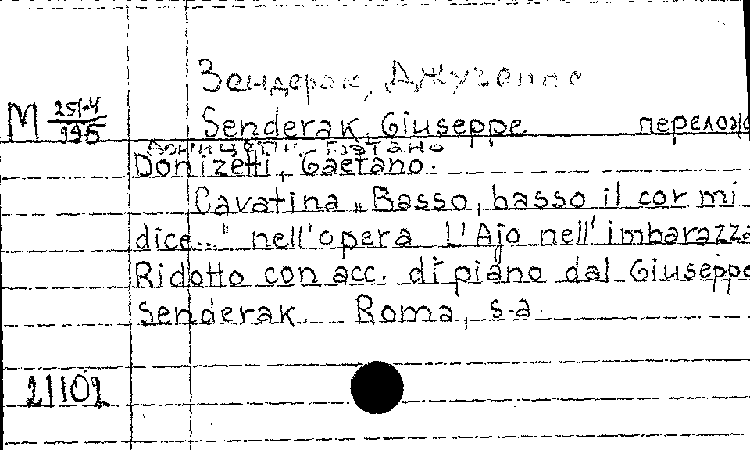 Зендерак, Джузеппе
М 251-4
995
Senderak, Giuseppe перелож
Доницетти, Гаэтано
Donizetti, Gaetano.
Cavatina „Basso, basso il cor mi
dice..." nell'opera L'Ajo nell'imbarazza
Ridotto con acc. di piano dal Giuseppe
Senderak. Roma, s.a.
21102